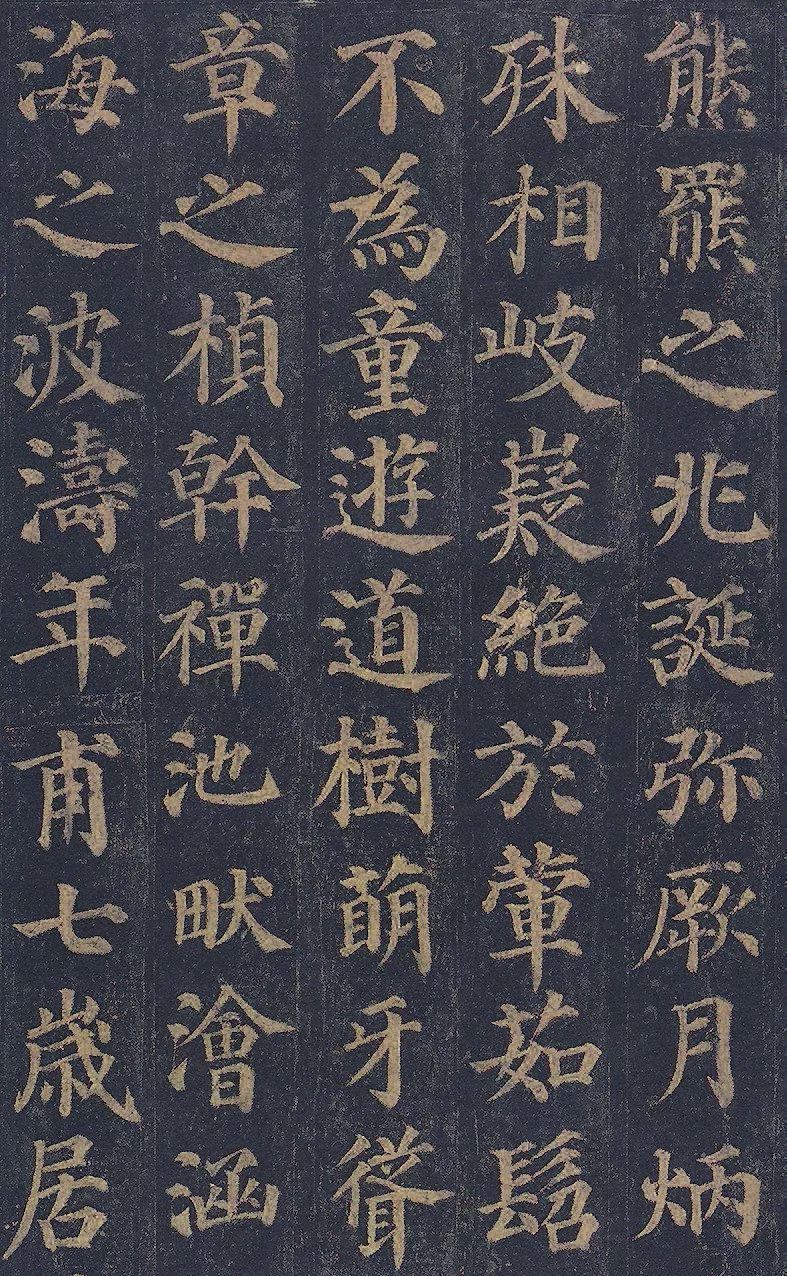 熊羆之兆誕弥厥月炳
殊相岐嶷絶於葷茹髫
不為童遊道樹萌牙聳
章之楨幹禪池畎澮涵
海之波濤年甫七歲居